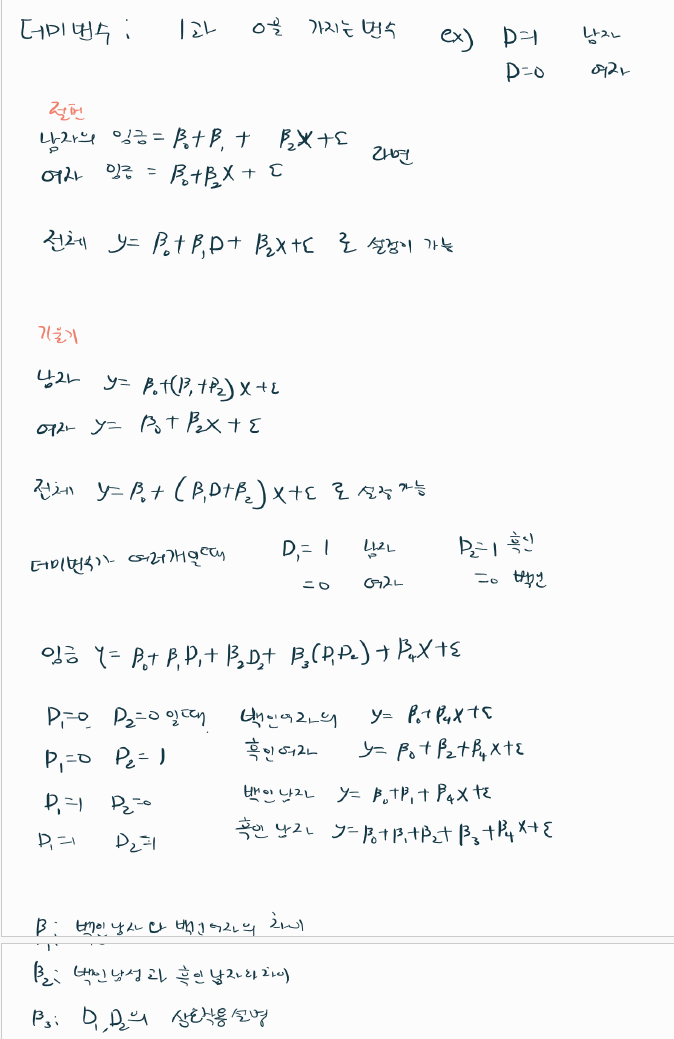 더미변수 : 1과 0을 가지는 변수 ex) D=1 남자
D=0 여자
절편
남자의 임금 = β₀+β₁ + β₂X+ε
여자 임금 = β₀+β₂X + ε 라면
전체 y= β₀+β₁D+ β₂X+ε 로 설정이 가능
기울기
남자 y= β₀+(β₁+β₂)X+ε
여자 y= β₀+β₂X+ε
전체 y= β₀+ (β₁D+β₂)X+ε 로 설정 가능
더미변수가 여러개일때 D₁= 1 남자 D₂=1 흑인
=0 여자 =0 백인
임금 Y= β₀+β₁D₁+β₂D₂+ β₃(D₁D₂)+β₄X+ε
D₁=0 D₂=0일때 백인여자의 y= β₀+β₄X+ε
D₁=0 D₂=1 흑인여자 y= β₀+β₂+β₄X+ε
D₁=1 D₂=0 백인남자 y= β₀+β₁+β₄X+ε
D₁=1 D₂=1 흑인 남자 y=β₀+β₁+β₂+β₃+β₄X+ε
β₁: 백인남자와 백인여자의 차이
β₂: 백인남성과 흑인남자의 차이
β₃: D₁,D₂의 상호작용설명